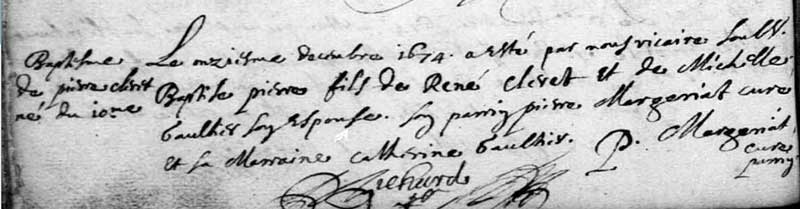 Baptesme
de pierre cleret
né du 10me
Le onziesme decembre 1674. a esté par nous vicaire
Baptise pierre fils de René Cleret et de Michelle
Gaultier son Espouse. son parrin pierre Margeriat cure
et sa Marraine Catherine Gaultier.
P. Margeriat
cure
parrin
Richard